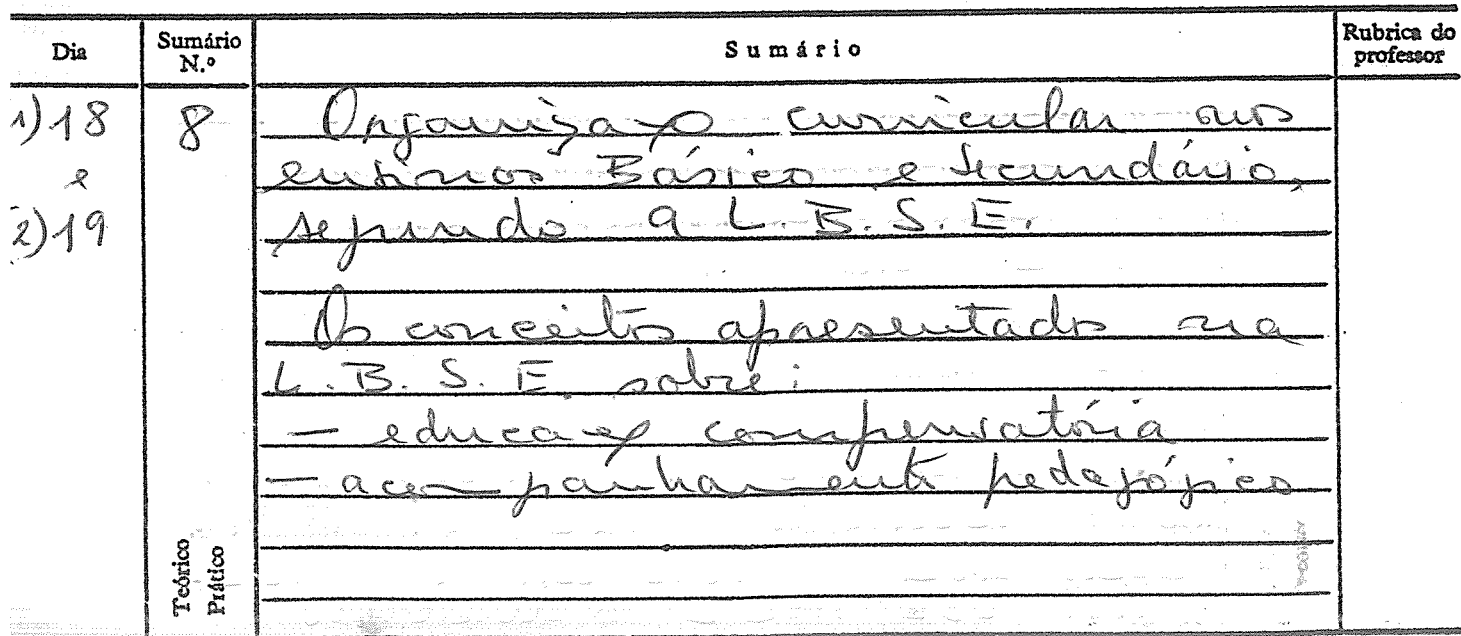 Dia
Sumário N.º
Sumário
Rubrica do professor
1) 18
e
2) 19
8
Organização curricular nos
ensinos Básico e Secundário,
segundo a L.B.S.E.
Os conceitos apresentados na
L.B.S.E. sobre:
— educação compensatória
— acompanhamento pedagógico
Teórico
Prático